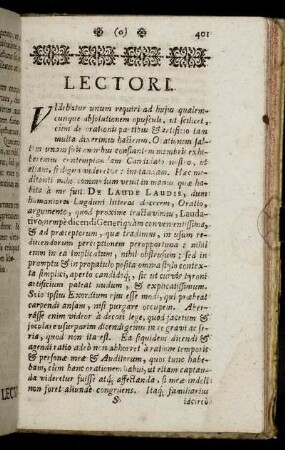 (0) 401
LECTORI.
Videbatur unum requiri ad hujus qualem-
cunque absolutionem opusculi, ut scilicet,
cùm de orationis partibus & artificio tam
multa dixerimus hactenus, Orationem sal-
tem unam suis omnibus constantem membris exhi-
beremus contemplandam Candidato nostro, ut
etiam, si dignam videretur: imitandam. Hac me-
ditanti mihi commodùm venit in manus quæ ha-
bita à me fuit DE LAUDE LAUDIS, dum
humaniores Lugduni litteras docerem, Oratio,
argumento, quod proxime tractavimus, Lauda-
tivo nempè dicendi Generi quàm convenientissima,
& ad præceptorum, quæ tradimus, in usum redu-
cendorum perceptionem peropportuna: nihil
enim in ea implicatum, nihil obstrusum; sed in
promptu & in propatulo posita omnia stylo contex-
ta simplici, aperto candidoq;, sic ut cuivis tyroni
artificium pateat nudum, & explicatissimum.
Scio ipsius Exordium ejus esse modi, quod præbeat
carpendi ansam, nisi purgare occupem. Aber-
râsse enim videor à decori lege, quod facetum &
joculare usurparim dicendi genus in re gravi ac se-
ria, quod non ita est. Ea siquidem dicendi &
agendi ratio adeò non abhorret à ratione temporis
& personæ meæ & Auditorum, quos tunc habe-
bam, cùm hanc orationem habui, ut etiam captan-
da videretur fuisse atq; affectanda, si meæ indoli
non foret aliunde congruens. Itaq; familiarius
S idcircò
LECTO